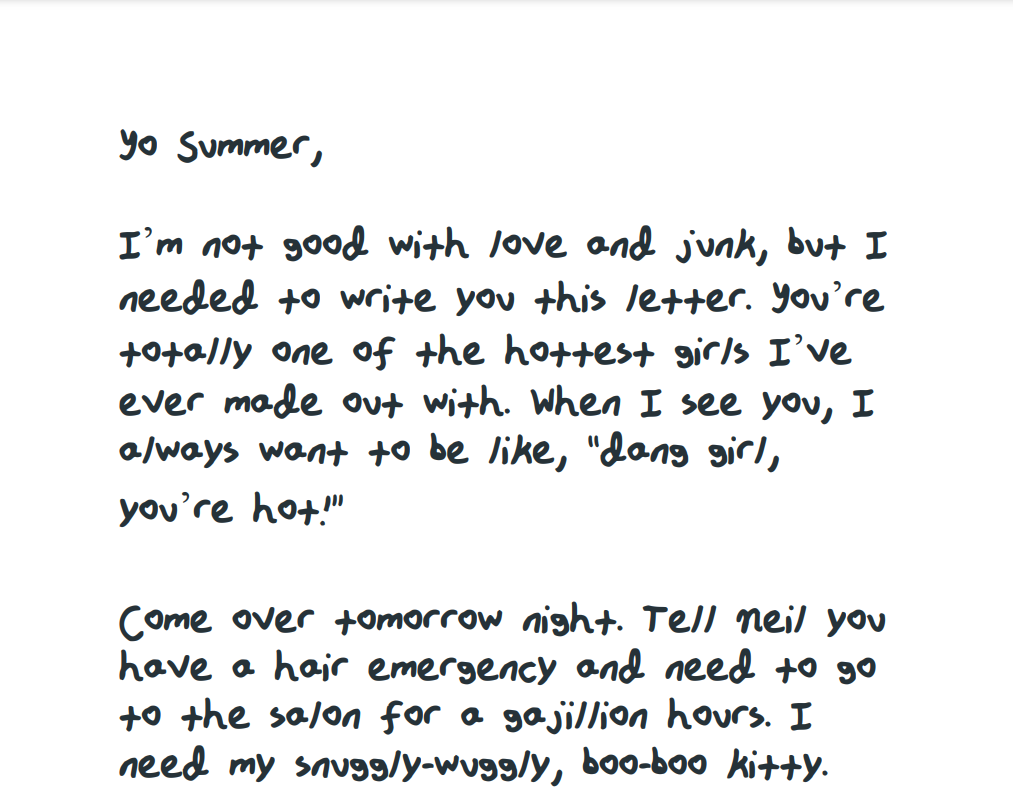 Yo Summer,
I'm not good with love and junk, but I
needed to write you this letter. You're
totally one of the hottest girls I've
ever made out with. When I see you, I
always want to be like, "dang girl,
you're hot!"
Come over tomorrow night. Tell Neil you
have a hair emergency and need to go
to the salon for a gajillion hours. I
need my snuggly-wuggly, boo-boo kitty.